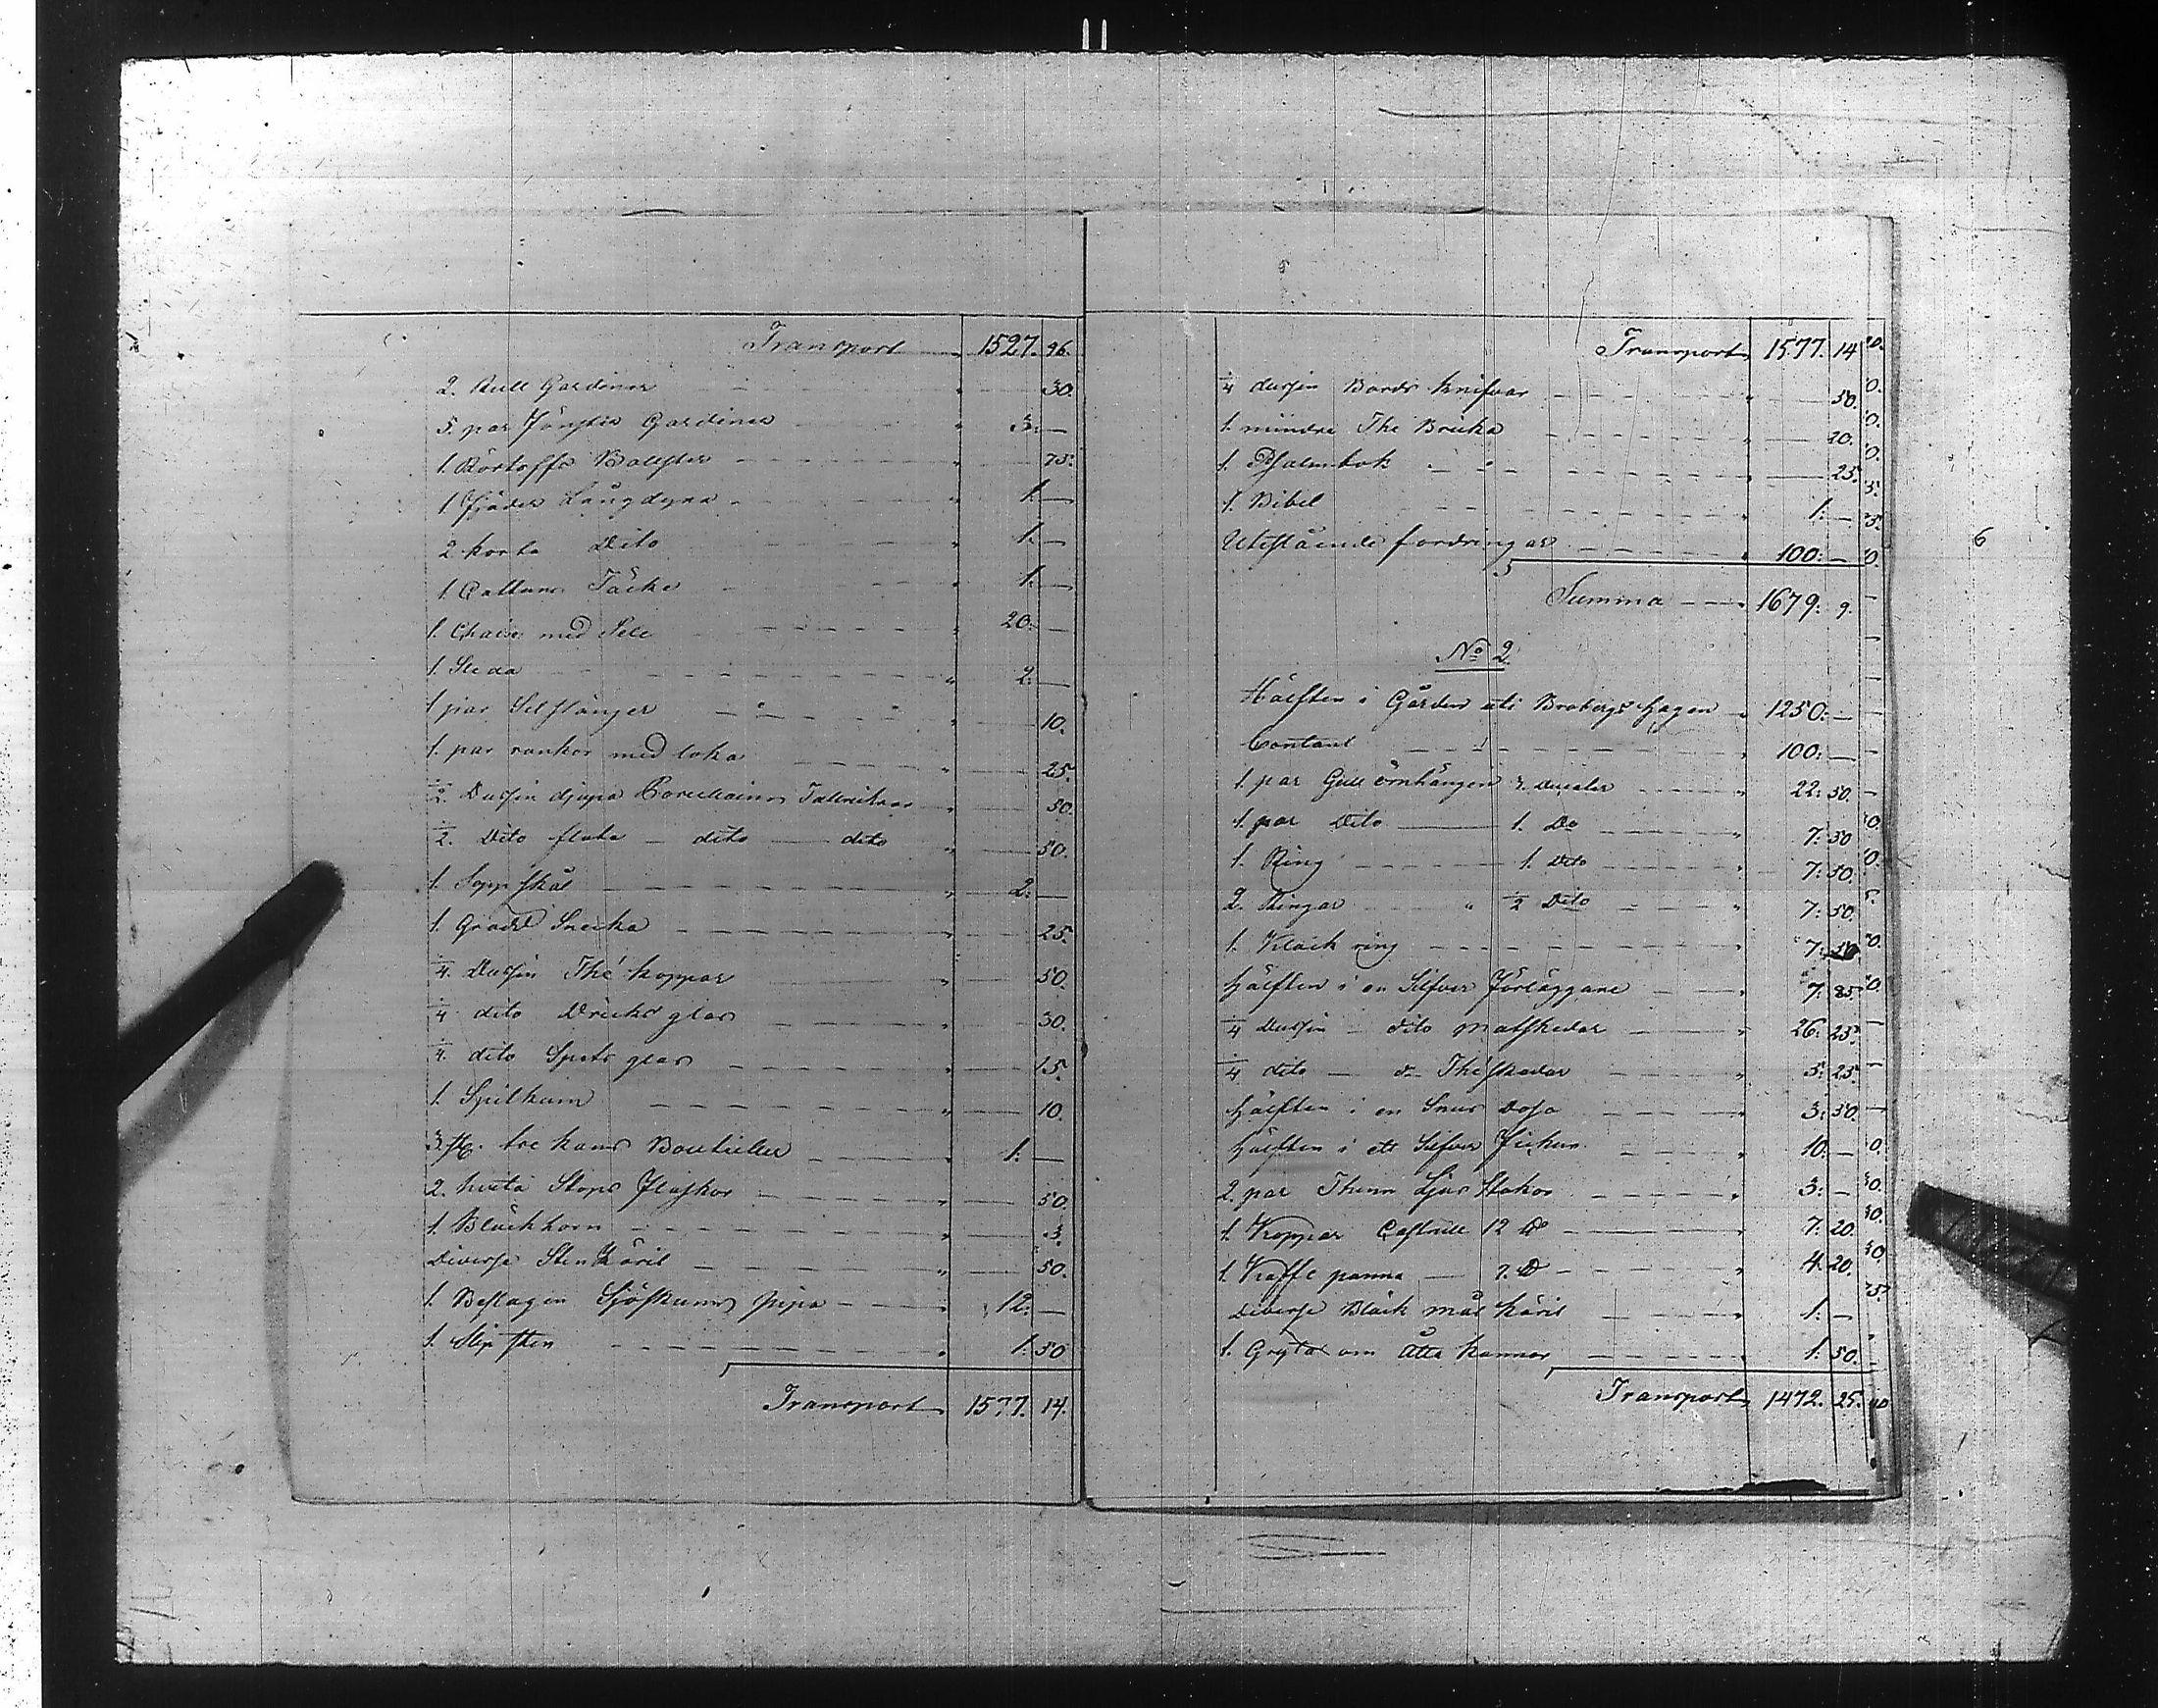 Transport 1527. 96.
2. Rull Gardiner 30.
5. par Fönster Gardiner 3. —
1. Kortoffs Bolster 75.
1 fjäder Långdyna 1. —
2 korta Dito 1. —
1. Cattuns Täcke 1. —
1. Chaise med Sele 20. —
1. Sleda 2. —
1 par Selstänger 10.
1. par rankor med loka 25.
1/2. Dussin djupa Porcellains Tallrikar 50.
1/2. Dito flata — dito — dito 50.
1. Soppskål 2. —
1. Gradd Snecka 25.
1/4. Dussin The koppar 50.
1/4 dito Dricks glas 30.
1/4. dito Spets glas 15.
1. Spilkum 10.
3. st. tre kans Bouteller 1. —
2. hvita Stops flaskor 50.
1. Bläckhorn 3.
Diverse Sten Käril 50.
1. Beslagen Sjöskums pipa 12. —
1. Slipsten 1. 50
Transport 1577. 14.
Transport 1577. 14
1/4 dussin Bords knifvar 50.
1. mindre The Bricka 20.
1. Psalmbok 25.
1. Bibel 1: —
Utestående fordringar 100: —
Summa 1679: 9.
No 2.
Hälften i Gården uti Brobergs hagen 1250: —
Contant 100: —
1. par Gull örnhängen 3. Ducater 22: 50.
1. par Dito — 1. Do 7: 50
1. Ring 1. Dito 7: 50.
2. Ringar " 1/2 Dito 7: 50.
1. Kläck ring 7: 50
Hälften i en Silfver Förläggare 7: 85.
1/4 Dussin — dito Matskedar 26: 25.
1/4 dito — do Théskedar 5: 25.
Hälften i en Snus Dosa 3: 50.
Hälften i ett Silfver 10: —
2. par Thenn Ljus Stakar 3: —
1. Koppar Castrull 12 ℔ 7: 20.
1. Kaffe panna — 7. ℔ 4: 20.
Diverse Bläck mål käril 1: —
1. Gryta om Åtta kannor 1: 50.
Transport 1472. 25.
6